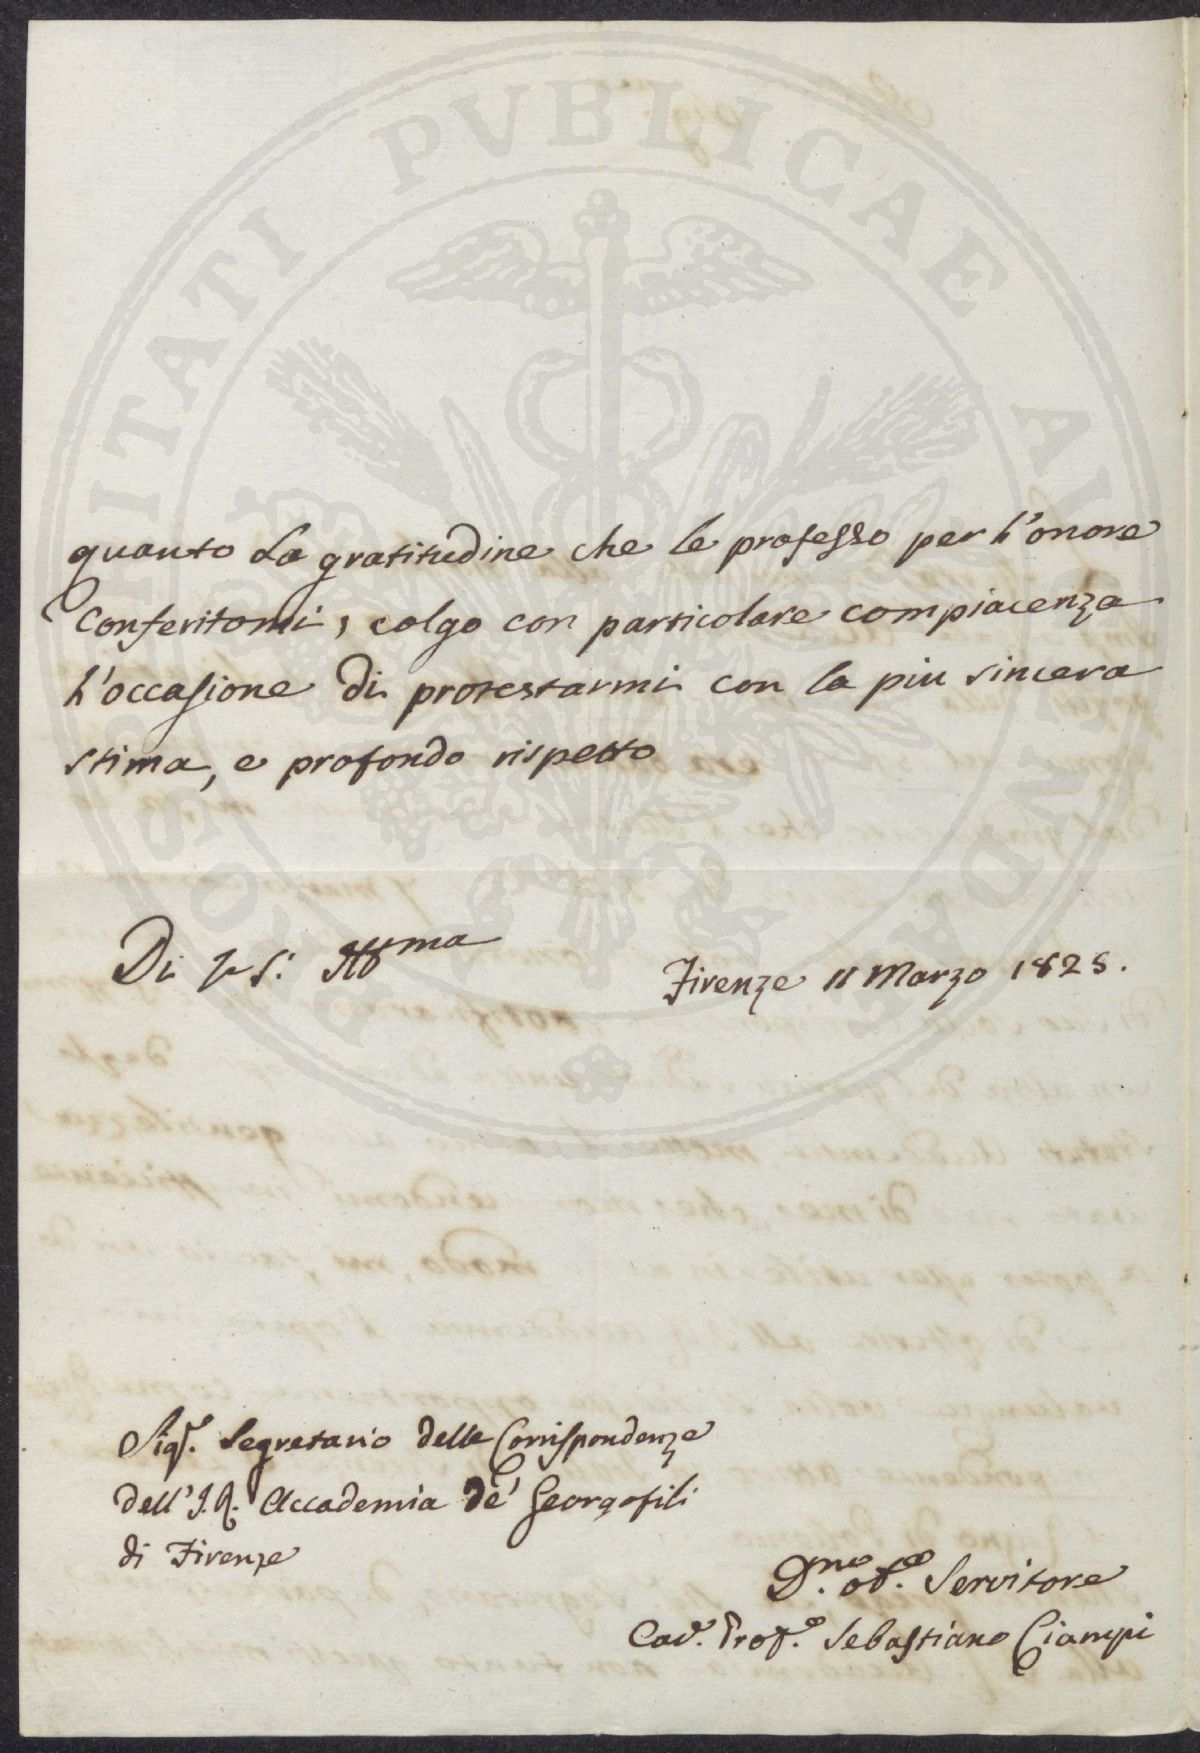 PROSPERITATI PUBLICAE AUGENDAE
quanto La gratitudine che le professo per l'onore
conferitomi, colgo con particolare compiacenza
l'occasione di protestarmi con la piu sincera
stima, e profondo rispetto
Di V. S. Ill.ma
Firenze 11 Marzo 1825.
Sig.r Segretario delle Corrispondenze
dell'I. R. Accademia de' Georgofili
di Firenze
D.mo ob.o Servitore
Cav.e Prof.e Sebastiano Ciampi